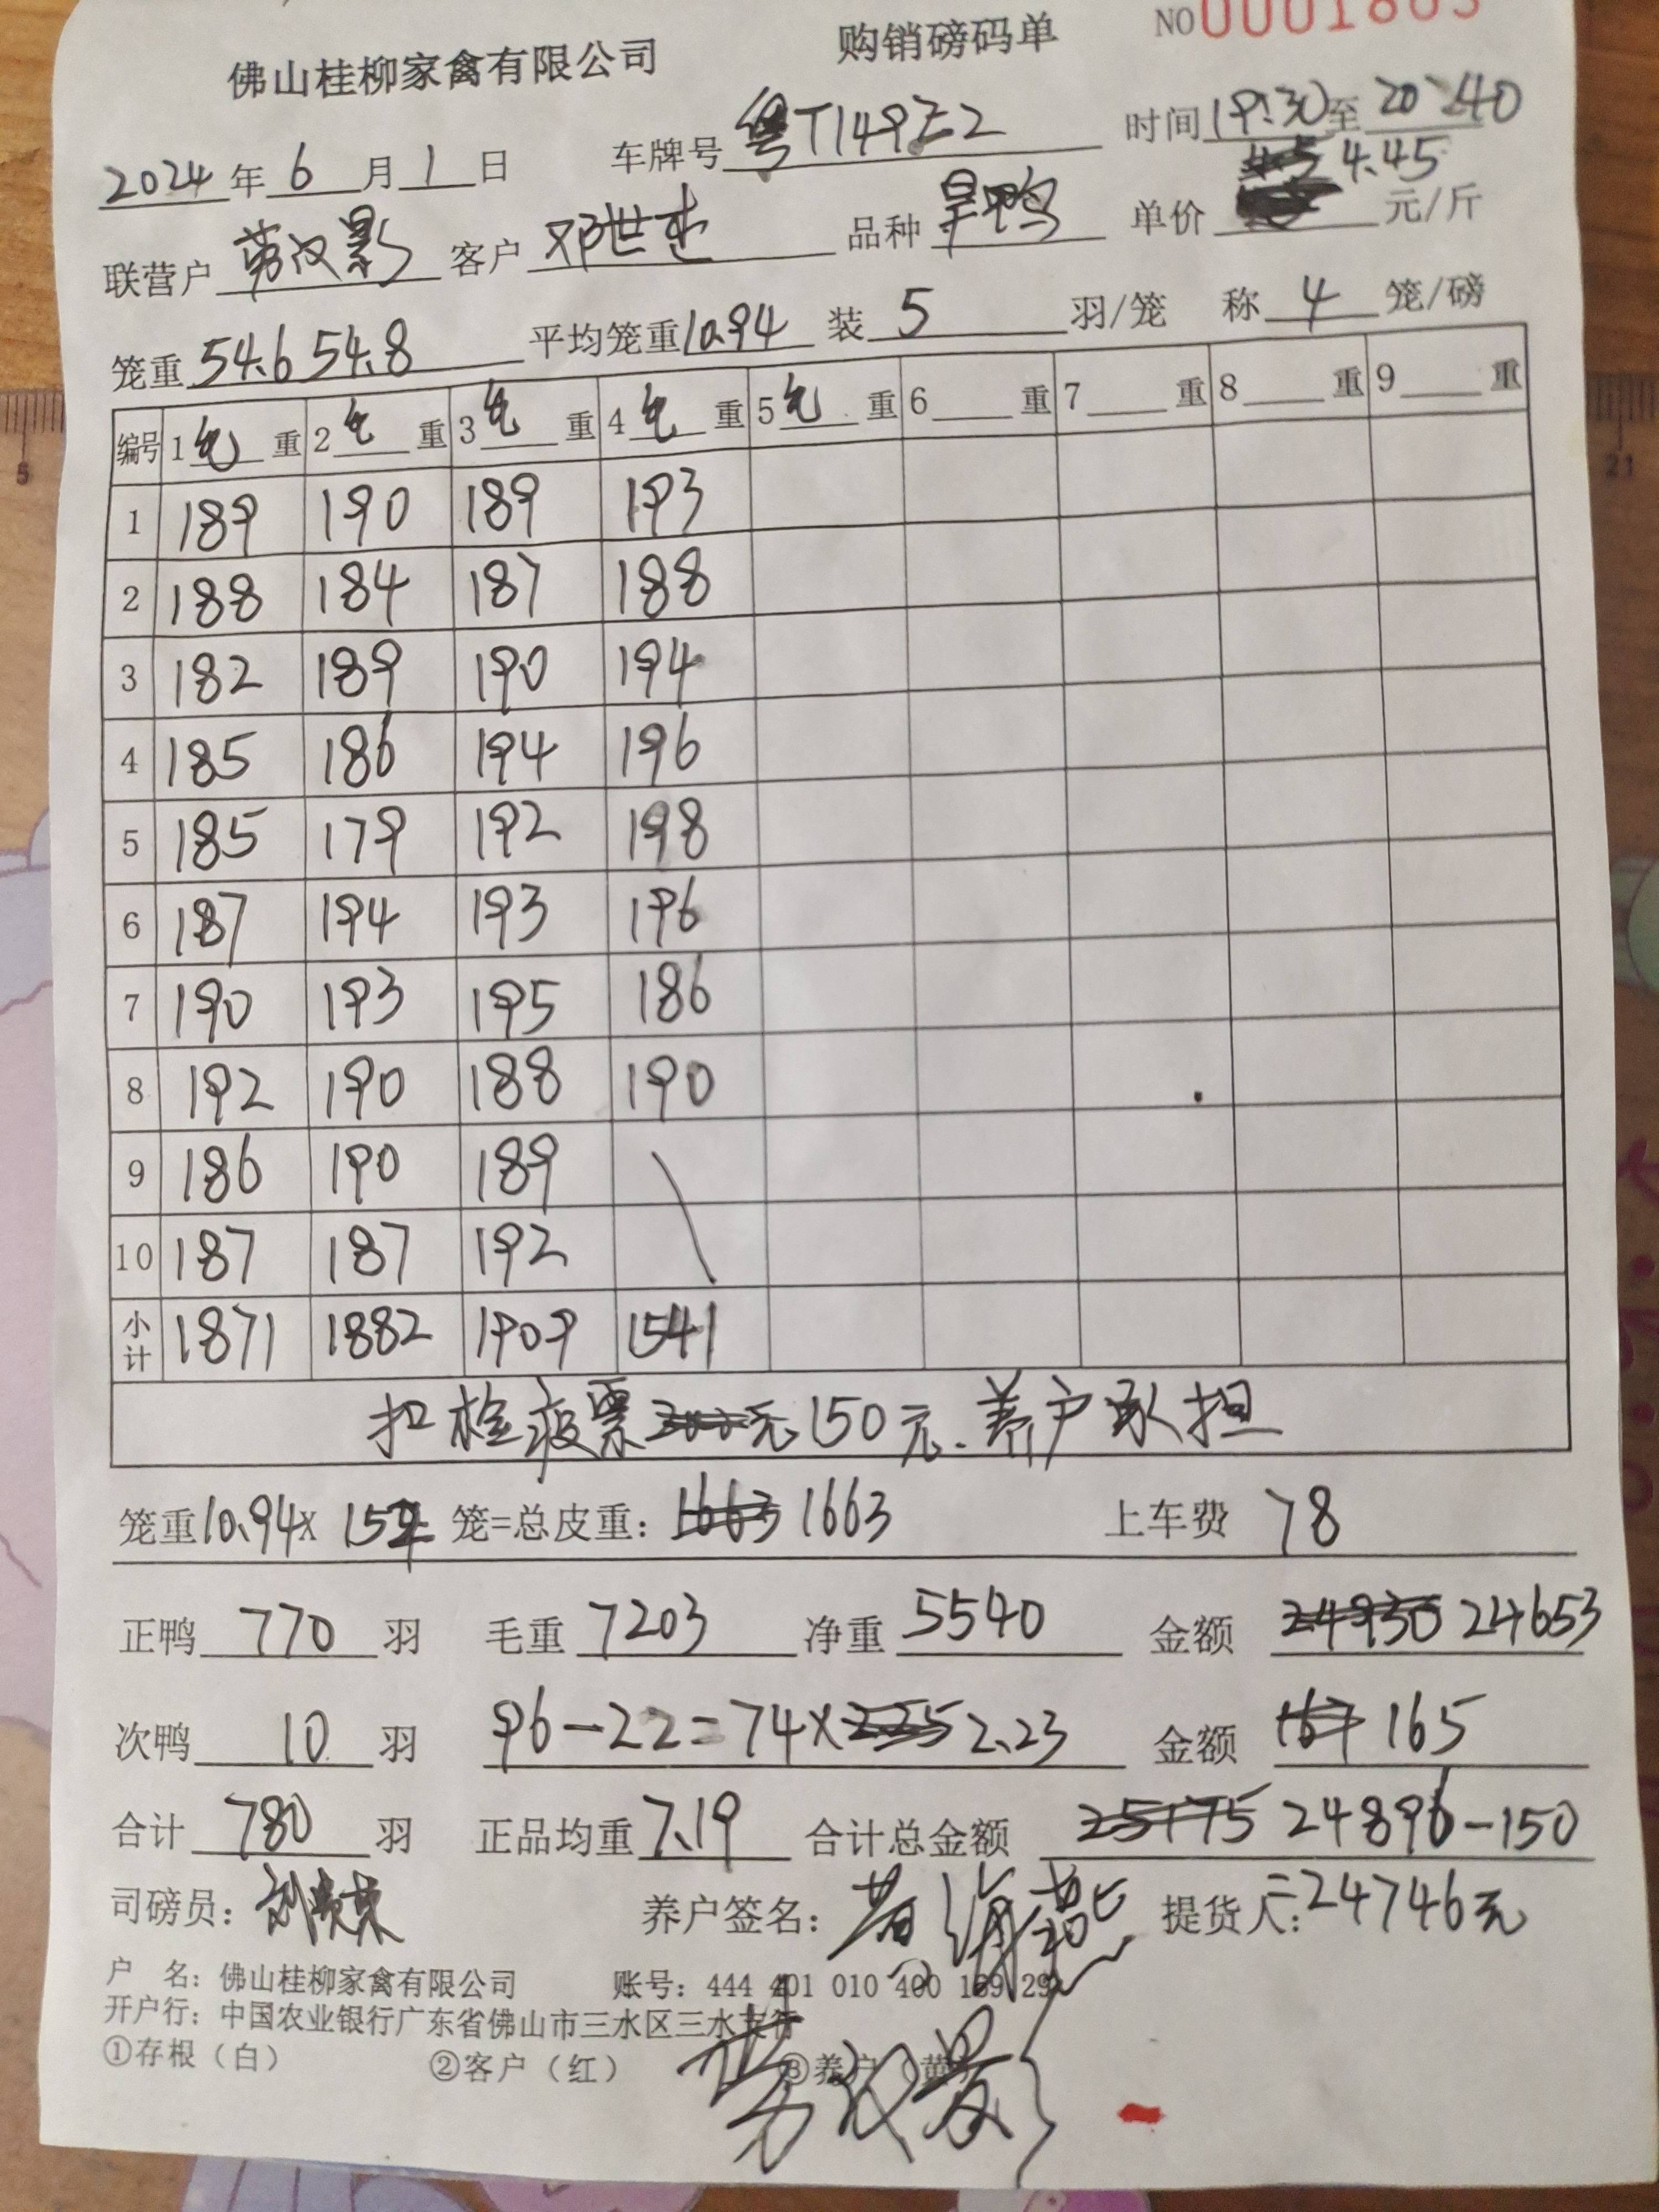 佛山桂柳家禽有限公司 购销磅码单 NO 0001863
2024年6月1日 车牌号 粤T149Z2 时间 19:30至20:40
4.45
联营户 客户 邓世 品种 鸭 单价 元/斤
笼重 54.6 54.8 平均笼重 10.94 装 5 羽/笼 称 4 笼/磅
编号 1毛重 2毛重 3毛重 4毛重 5毛重 6重 7重 8重 9重
1 189 190 189 193
2 188 184 187 188
3 182 189 190 194
4 185 186 194 196
5 185 179 192 198
6 187 194 193 196
7 190 193 195 186
8 192 190 188 190
9 186 190 189
10 187 187 192
小计 1871 1882 1909 1541
扣检疫票 元150元.养户承担
笼重10.94× 152 笼=总皮重: 1663 1663 上车费 78
正鸭 770 羽 毛重 7203 净重 5540 金额 24930 24653
次鸭 10 羽 96-22=74×2.25 2.23 金额 167 165
合计 780 羽 正品均重 7.19 合计总金额 25175 24896-150
司磅员: 养户签名: 提货人: =24746元
户 名: 佛山桂柳家禽有限公司 账号: 444 401 010 400 169 29
开户行: 中国农业银行广东省佛山市三水区三水支行
①存根(白) ②客户(红) ③养户(黄)